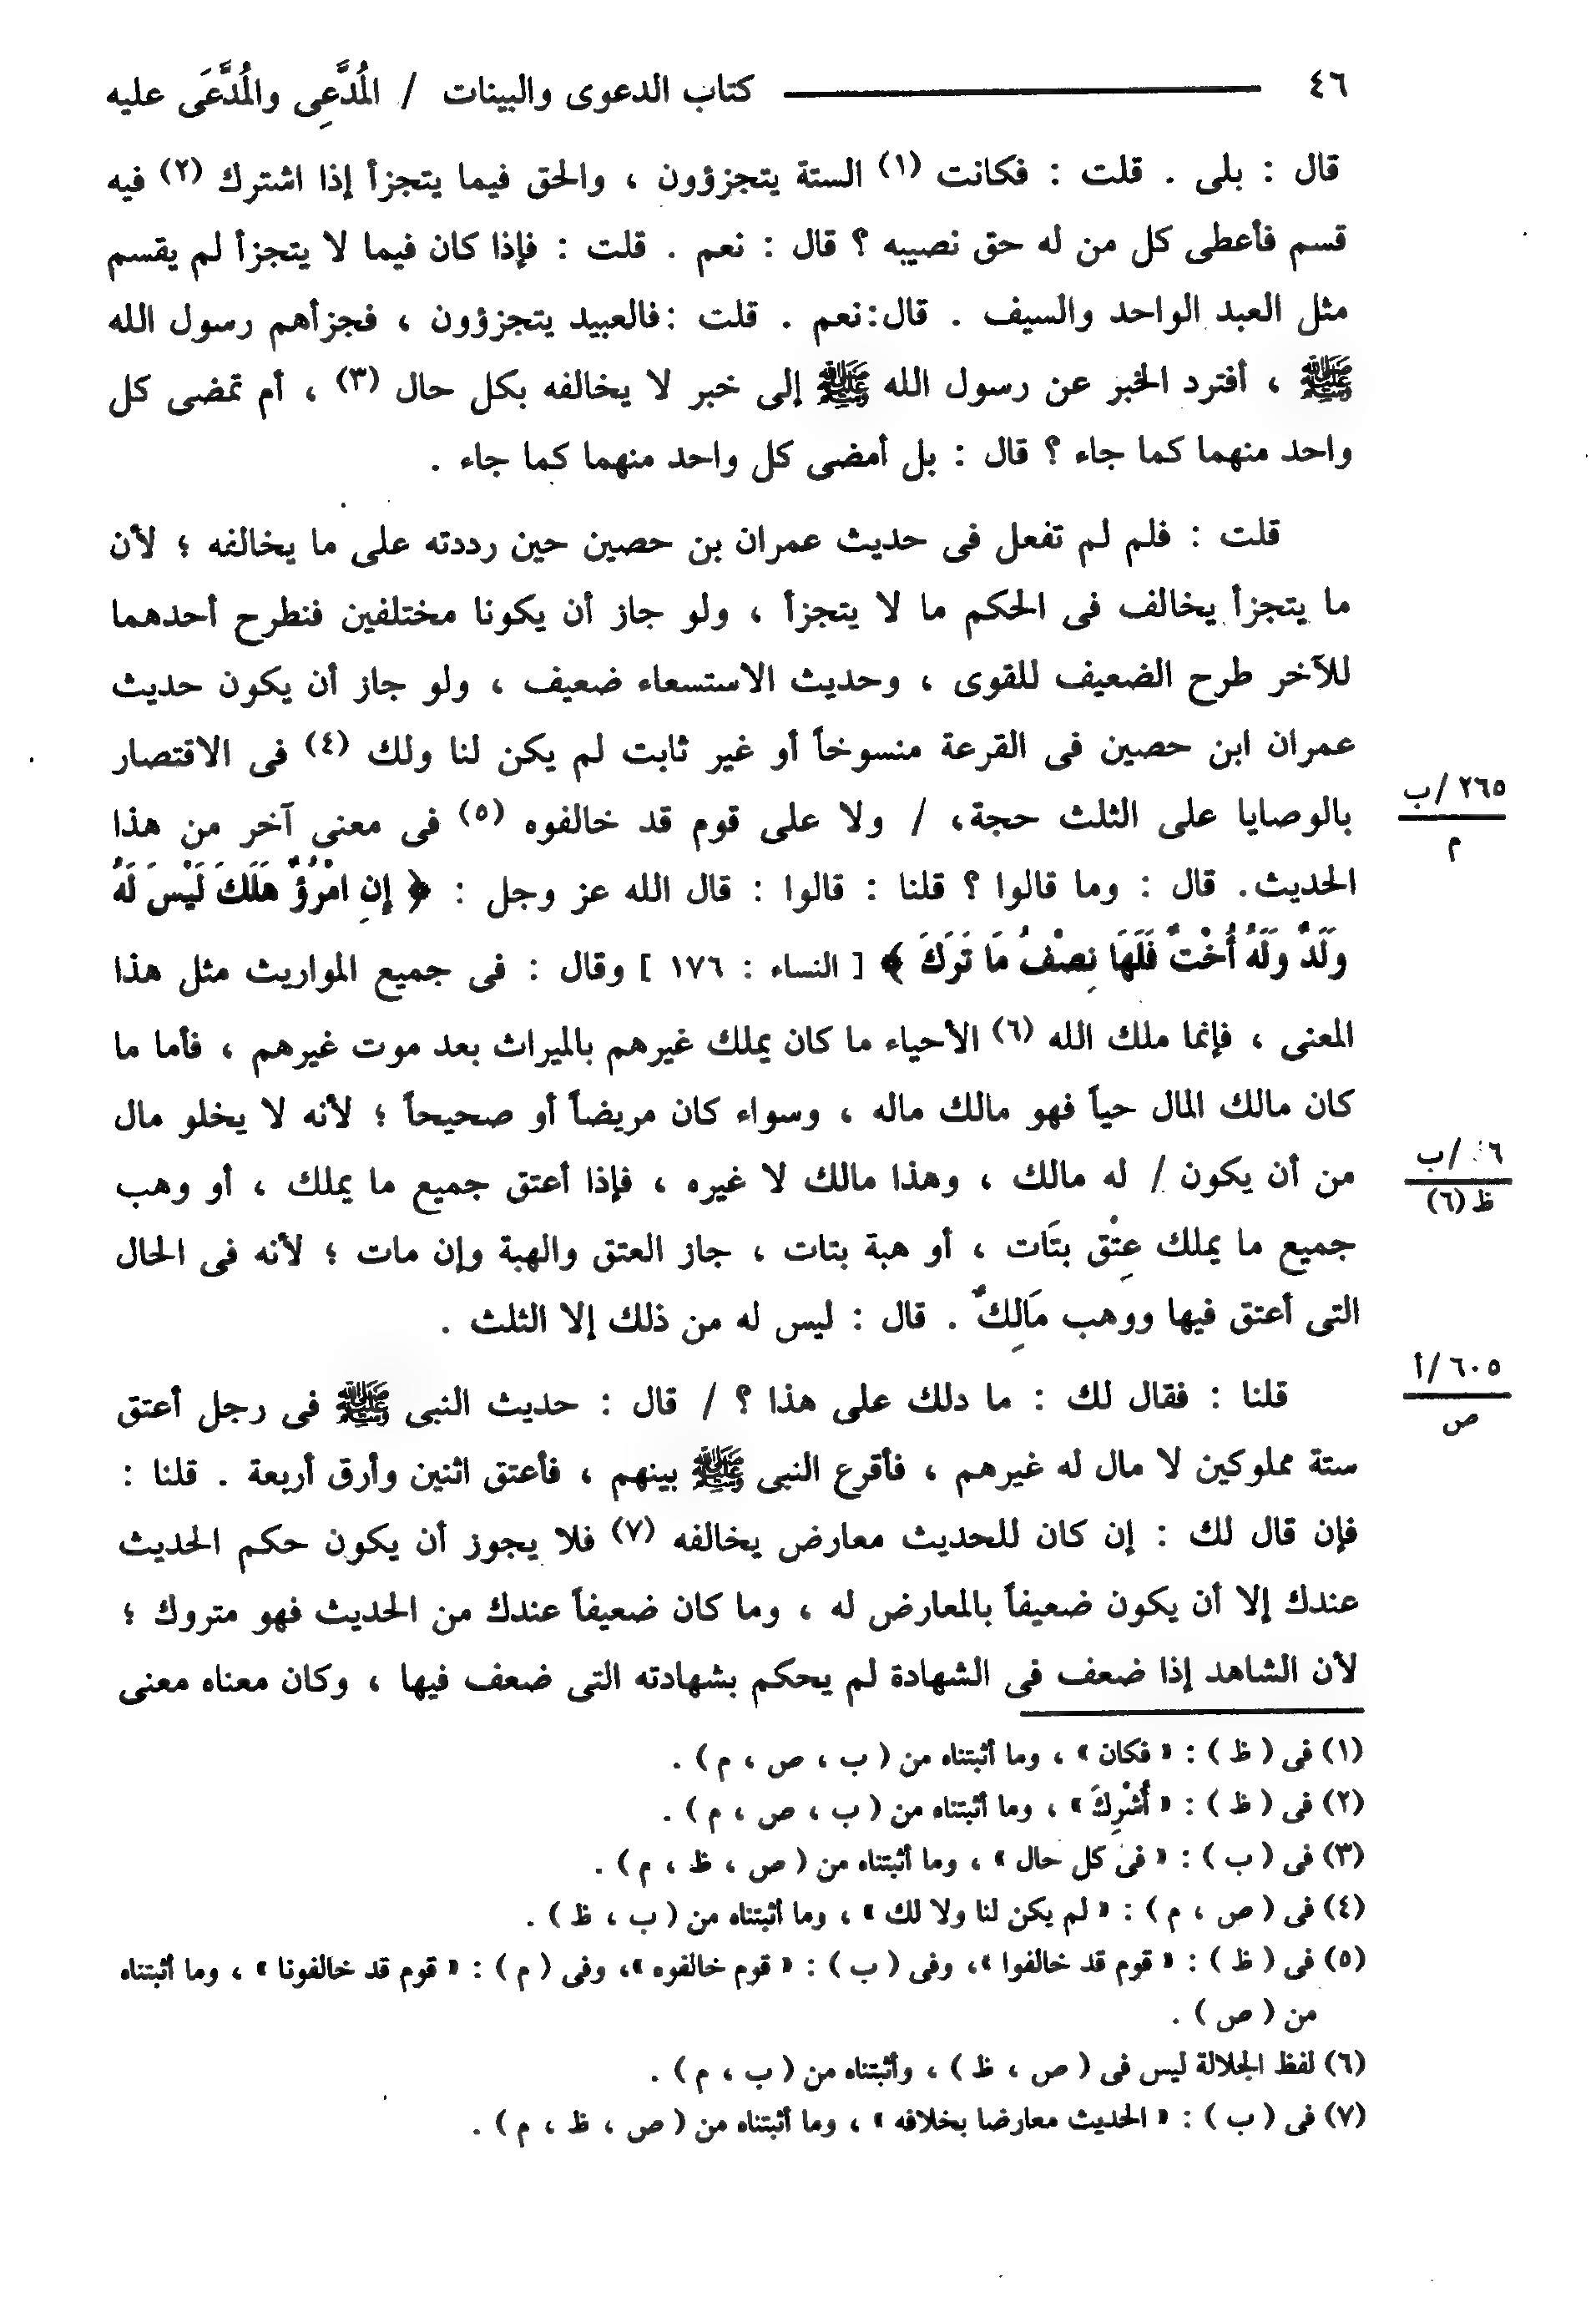 ٤٦ كتاب الدعوى والبينات / المُدَّعِى والمُدَّعَى عليه
قال : بلى . قلت : فكانت (١) الستة يتجزؤون ، والحق فيما يتجزأ إذا اشترك (٢) فيه
قسم فأعطى كل من له حق نصيبه ؟ قال : نعم . قلت : فإذا كان فيما لا يتجزأ لم يقسم
مثل العبد الواحد والسيف . قال:نعم . قلت :فالعبيد يتجزؤون ، فجزأهم رسول الله
ﷺ ، أفترد الخبر عن رسول الله ﷺ إلى خبر لا يخالفه بكل حال (٣) ، أم تمضى كل
واحد منهما كما جاء ؟ قال : بل أمضى كل واحد منهما كما جاء .
قلت : فلم لم تفعل فى حديث عمران بن حصين حين رددته على ما يخالفه ؛ لأن
ما يتجزأ يخالف فى الحكم ما لا يتجزأ ، ولو جاز أن يكونا مختلفين فنطرح أحدهما
للآخر طرح الضعيف للقوى ، وحديث الاستسعاء ضعيف ، ولو جاز أن يكون حديث
عمران ابن حصين فى القرعة منسوخاً أو غير ثابت لم يكن لنا ولك (٤) فى الاقتصار
بالوصايا على الثلث حجة، / ولا على قوم قد خالفوه (٥) فى معنى آخر من هذا
٢٦٥ /ب
م
الحديث. قال : وما قالوا ؟ قلنا : قالوا : قال الله عز وجل : ﴿ إِنِ امْرُؤٌ هَلَكَ لَيْسَ لَهُ
وَلَدٌ وَلَهُ أُخْتٌ فَلَهَا نِصْفُ مَا تَرَكَ ﴾ [ النساء : ١٧٦ ] وقال : فى جميع المواريث مثل هذا
المعنى ، فإنما ملك الله (٦) الأحياء ما كان يملك غيرهم بالميراث بعد موت غيرهم ، فأما ما
كان مالك المال حياً فهو مالك ماله ، وسواء كان مريضاً أو صحيحاً ؛ لأنه لا يخلو مال
من أن يكون / له مالك ، وهذا مالك لا غيره ، فإذا أعتق جميع ما يملك ، أو وهب
/ب
ظ (٦)
جميع ما يملك عِتْق بتَات ، أو هبة بتات ، جاز العتق والهبة وإن مات ؛ لأنه فى الحال
التى أعتق فيها ووهب مَالِكٌ . قال : ليس له من ذلك إلا الثلث .
قلنا : فقال لك : ما دلك على هذا ؟ / قال : حديث النبى ﷺ فى رجل أعتق
٦٠٥ /أ
ص
ستة مملوكين لا مال له غيرهم ، فأقرع النبى ﷺ بينهم ، فأعتق اثنين وأرق أربعة . قلنا :
فإن قال لك : إن كان للحديث معارض يخالفه (٧) فلا يجوز أن يكون حكم الحديث
عندك إلا أن يكون ضعيفاً بالمعارض له ، وما كان ضعيفاً عندك من الحديث فهو متروك ؛
لأن الشاهد إذا ضعف فى الشهادة لم يحكم بشهادته التى ضعف فيها ، وكان معناه معنى
(١) فى ( ظ ) : « فكان » ، وما أثبتناه من ( ب ، ص ، م ) .
(٢) فى ( ظ ) : « أُشْرِكَ » ، وما أثبتناه من ( ب ، ص ، م ) .
(٣) فى ( ب ) : « فى كل حال » ، وما أثبتناه من ( ص ، ظ ، م ) .
(٤) فى ( ص ، م ) : « لم يكن لنا ولا لك » ، وما أثبتناه من ( ب ، ظ ) .
(٥) فى ( ظ ) : « قوم قد خالفوا »، وفى ( ب ) : « قوم خالفوه »، وفى ( م ) : « قوم قد خالفونا » ، وما أثبتناه
من ( ص ) .
(٦) لفظ الجلالة ليس فى ( ص ، ظ ) ، وأثبتناه من ( ب ، م ) .
(٧) فى ( ب ) : « الحديث معارضا بخلافه » ، وما أثبتناه من ( ص ، ظ ، م ) .